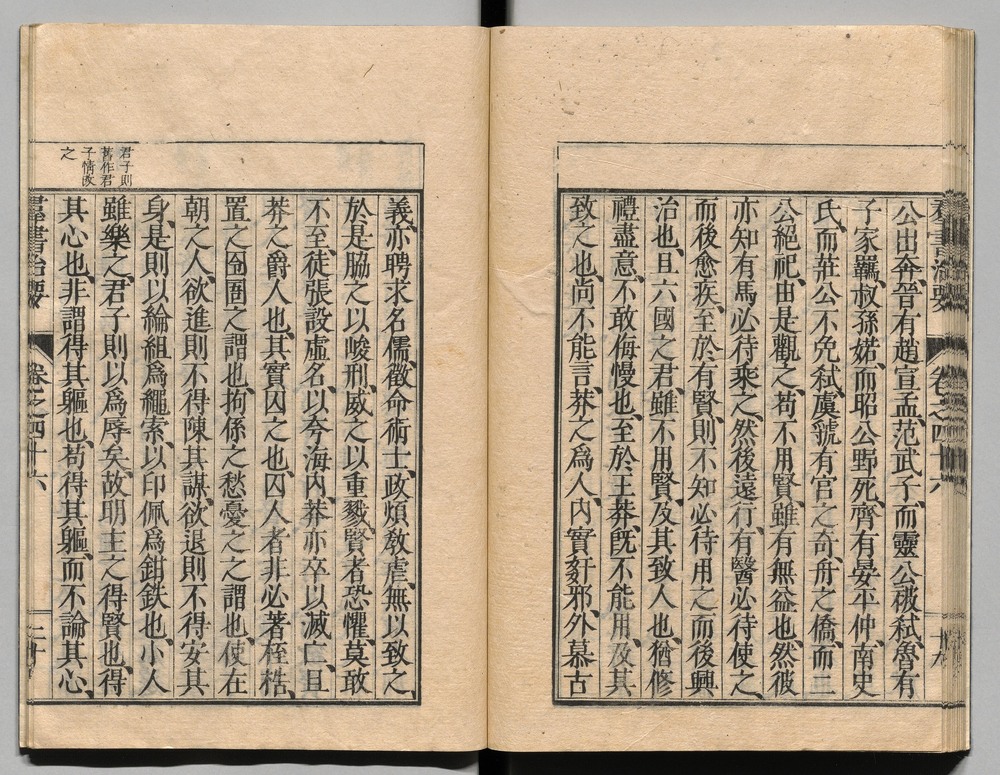 公出奔、晉有趙宣孟、范武子、而靈公被弑、魯有
子家羈、叔孫婼、而昭公野死、齊有晏平仲、南史
氏、而莊公不免弑、虞虢有宮之奇、舟之僑、而二
公絕祀、由是觀之、苟不用賢、雖有無益也、然彼
亦知有馬必待乘之、然後遠行、有醫必待使之、
而後愈疾、至於有賢、則不知必待用之、而後興
治也、且六國之君、雖不用賢、及其致人也、猶修
禮盡意、不敢侮慢也、至於王莽、既不能用、及其
致之也、尚不能言、莽之爲人、內實姧邪、外慕古
義、亦聘求名儒、徵命術士、政煩敎虐、無以致之、
於是脇之以峻刑、威之以重戮、賢者恐懼、莫敢
不至、徒張設虛名、以夸海內、莽亦卒以滅亡、且
莽之爵人也、其實囚之也、囚人者、非必著桎梏、
置之囹圄之謂也、拘係之、愁憂之之謂也、使在
朝之人、欲進則不得陳其謀、欲退則不得安其
身、是則以綸組爲繩索、以印佩爲鉗鈇也、小人
雖樂之、君子則以爲辱矣、故明主之得賢也、得
其心也、非謂得其軀也、苟得其軀、而不論其心、
羣書治要
卷之四十六
二十
君子則
舊作君
子情改
之